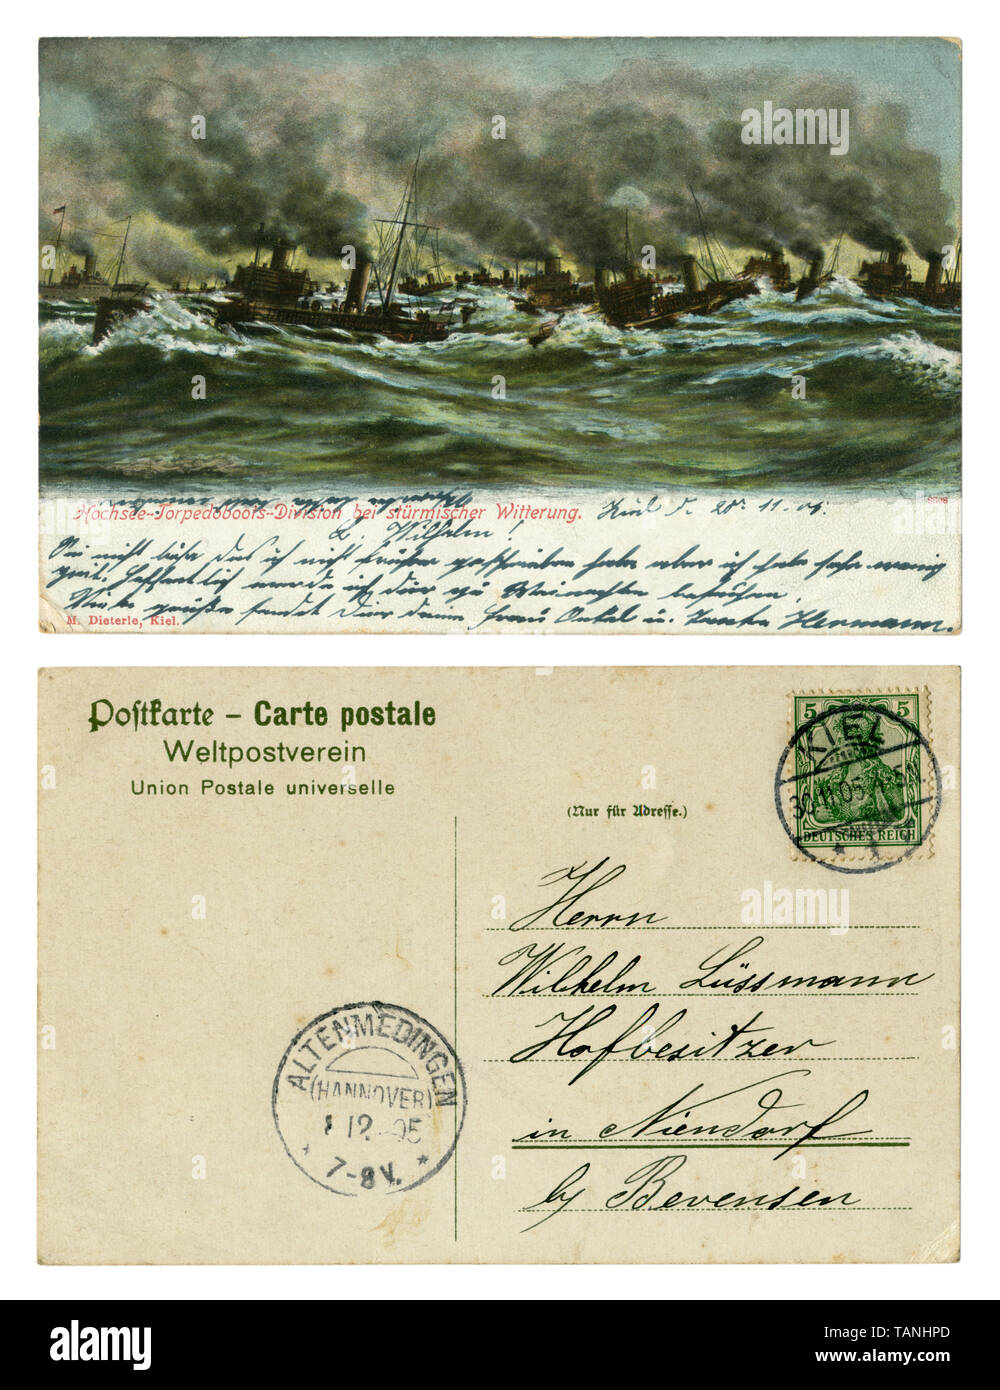 Hochsee-Torpedoboots-Division bei stürmischer Witterung.
Kiel d. 28. 11. 05.
8008
L. Wilhelm!
Sei nicht böse das ich nicht früher geschrieben habe aber ich habe sehr wenig
Zeit. Hoffentlich werde ich dier zu Weinachten besuchen.
Viele grüße sendet Dier deine Frau Onkel u. Tante Hermann.
M. Dieterle, Kiel.
Postkarte – Carte postale
Weltpostverein
Union Postale universelle
(Nur für Adresse.)
5 5
KIEL
30.11.05.
1
DEUTSCHES REICH
Herrn
Wilhelm Lüssmann
Hofbesitzer
in Niendorf
by Bevensen
ALTENMEDINGEN
(HANNOVER)
1 12 05
7-8 V.
alamy
alamy
alamy
alamy
a a a a a a
alamy
Image ID: TANHPD
www.alamy.com